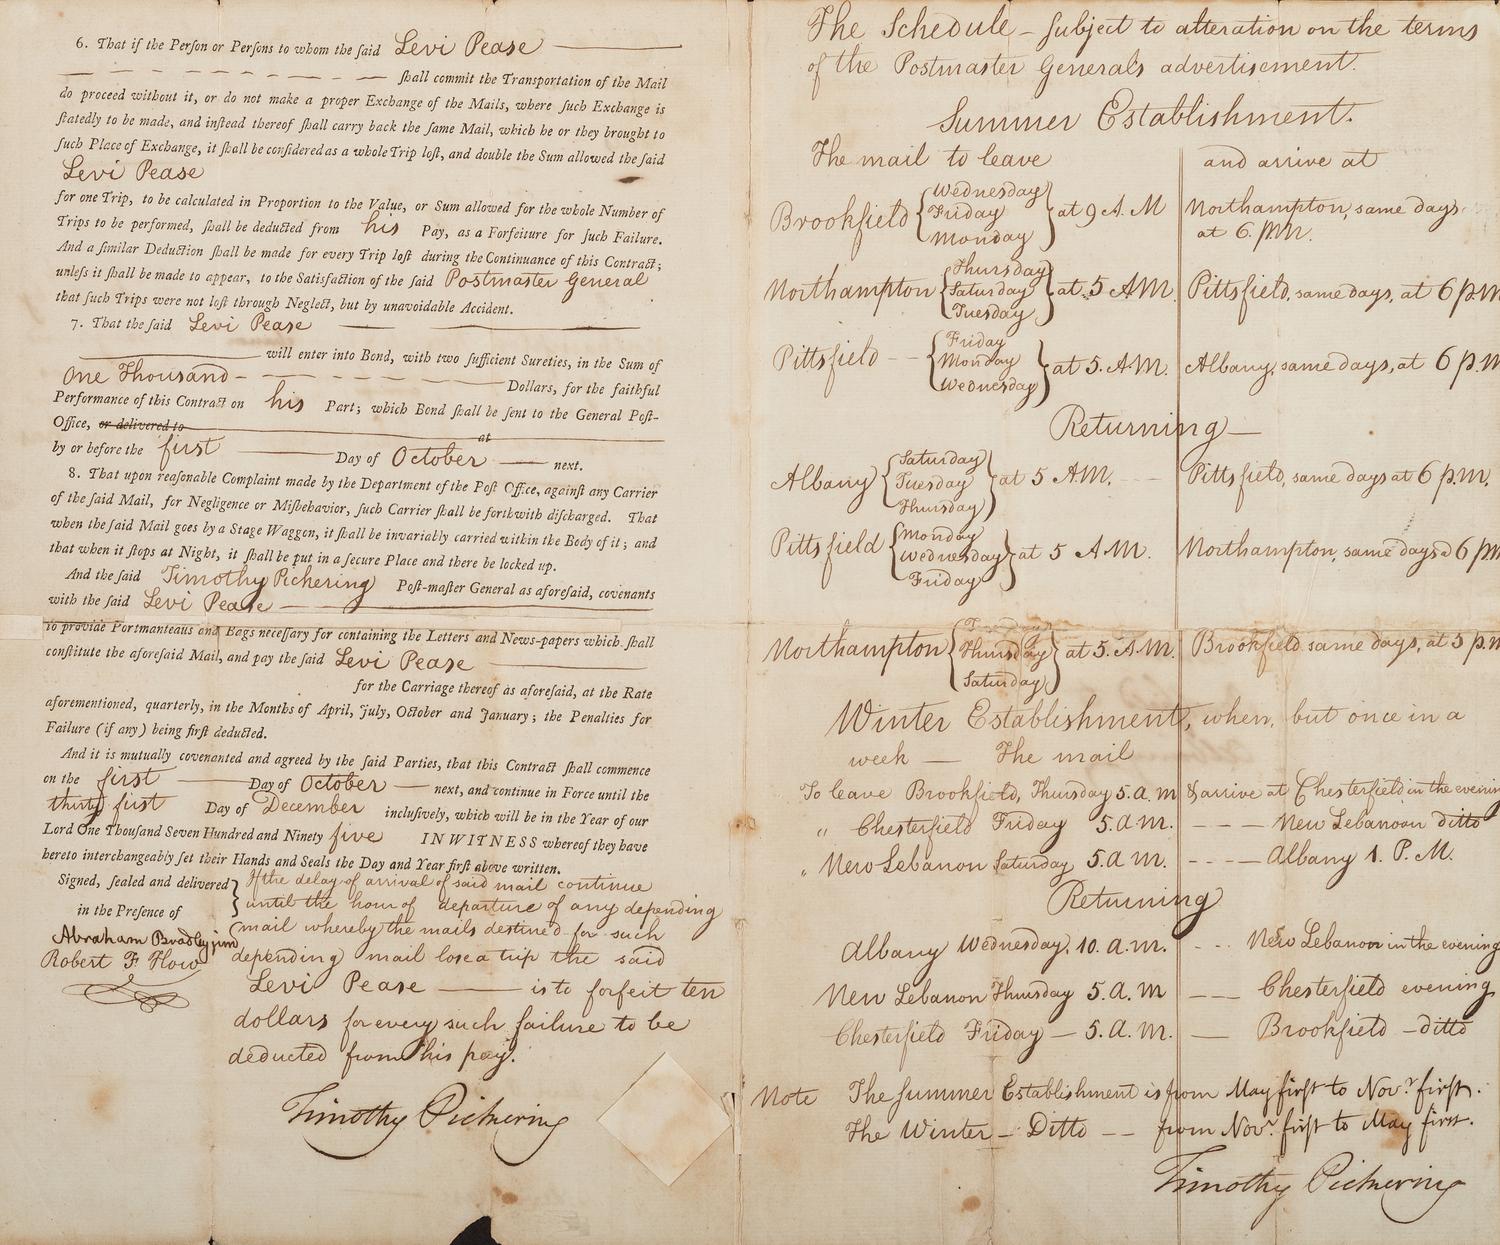 6. That if the Perſon or Perſons to whom the ſaid Levi Pease
ſhall commit the Tranſportation of the Mail
do proceed without it, or do not make a proper Exchange of the Mails, where ſuch Exchange is
ſtatedly to be made, and inſtead thereof ſhall carry back the ſame Mail, which he or they brought to
ſuch Place of Exchange, it ſhall be conſidered as a whole Trip loſt, and double the Sum allowed the ſaid
Levi Pease
for one Trip, to be calculated in Proportion to the Value, or Sum allowed for the whole Number of
Trips to be performed, ſhall be deducted from his Pay, as a Forfeiture for ſuch Failure.
And a ſimilar Deduction ſhall be made for every Trip loſt during the Continuance of this Contract;
unleſs it ſhall be made to appear, to the Satisfaction of the ſaid Postmaster General
that ſuch Trips were not loſt through Neglect, but by unavoidable Accident.
7. That the ſaid Levi Pease
will enter into Bond, with two ſufficient Sureties, in the Sum of
One Thousand Dollars, for the faithful
Performance of this Contract on his Part; which Bond ſhall be ſent to the General Poſt-
Office, or delivered to
at
by or before the first Day of October next.
8. That upon reaſonable Complaint made by the Department of the Poſt Office, againſt any Carrier
of the ſaid Mail, for Negligence or Miſbehavior, ſuch Carrier ſhall be forthwith diſcharged. That
when the ſaid Mail goes by a Stage Waggon, it ſhall be invariably carried within the Body of it; and
that when it ſtops at Night, it ſhall be put in a ſecure Place and there be locked up.
And the ſaid Timothy Pickering Poſt-maſter General as aforeſaid, covenants
with the ſaid Levi Pease
to provide Portmanteaus and Bags neceſſary for containing the Letters and News-papers which ſhall
conſtitute the aforeſaid Mail, and pay the ſaid Levi Pease
for the Carriage thereof as aforeſaid, at the Rate
aforementioned, quarterly, in the Months of April, July, October and January; the Penalties for
Failure (if any) being firſt deducted.
And it is mutually covenanted and agreed by the ſaid Parties, that this Contract ſhall commence
on the first Day of October next, and continue in Force until the
thirty first Day of December incluſively, which will be in the Year of our
Lord One Thouſand Seven Hundred and Ninety five IN WITNESS whereof they have
hereto interchangeably ſet their Hands and Seals the Day and Year firſt above written.
Signed, ſealed and delivered
in the Preſence of
Abraham Bradley jun
Robert F How
If the delay of arrival of said mail continue
until the hour of departure of any depending
mail whereby the mails destined for such
depending mail lose a trip the said
Levi Pease — is to forfeit ten
dollars for every such failure to be
deducted from his pay.
Timothy Pickering
The Schedule – subject to alteration on the terms
of the Postmaster General's advertisement.
Summer Establishment.
The mail to leave and arrive at
Brookfield { Wednesday Friday Monday } at 9 A.M Northampton, same days at 6. pm.
Northampton { Thursday Saturday Tuesday } at 5 A.M. Pittsfield, same days, at 6 p.m
Pittsfield -- { Friday Monday Wednesday } at 5. A.M. Albany, same days, at 6 p.m
Returning —
Albany { Saturday Tuesday Thursday } at 5 A.M. Pittsfield, same days at 6 p.m.
Pittsfield { Monday Wednesday Friday } at 5 A.M. Northampton, same days a 6 pm
Northampton { Tuesday Thursday Saturday } at 5. A.M. Brookfield same days, at 5 p.m
Winter Establishment, when, but once in a
week — The mail
To leave Brookfield, Thursday 5. a. m & arrive at Chesterfield in the evening
„ Chesterfield Friday 5. a. m. --- New Lebanon ditto
„ New Lebanon Saturday 5. a m. --- Albany 1. P. M.
Returning
Albany Wednesday, 10. a. m. -- New Lebanon in the evening
New Lebanon Thursday 5. a. m -- Chesterfield evening
Chesterfield Friday — 5. a. m. — Brookfield – ditto
Note The summer Establishment is from May first to Novr. first.
The Winter – Ditto -- from Novr. first to May first.
Timothy Pickering